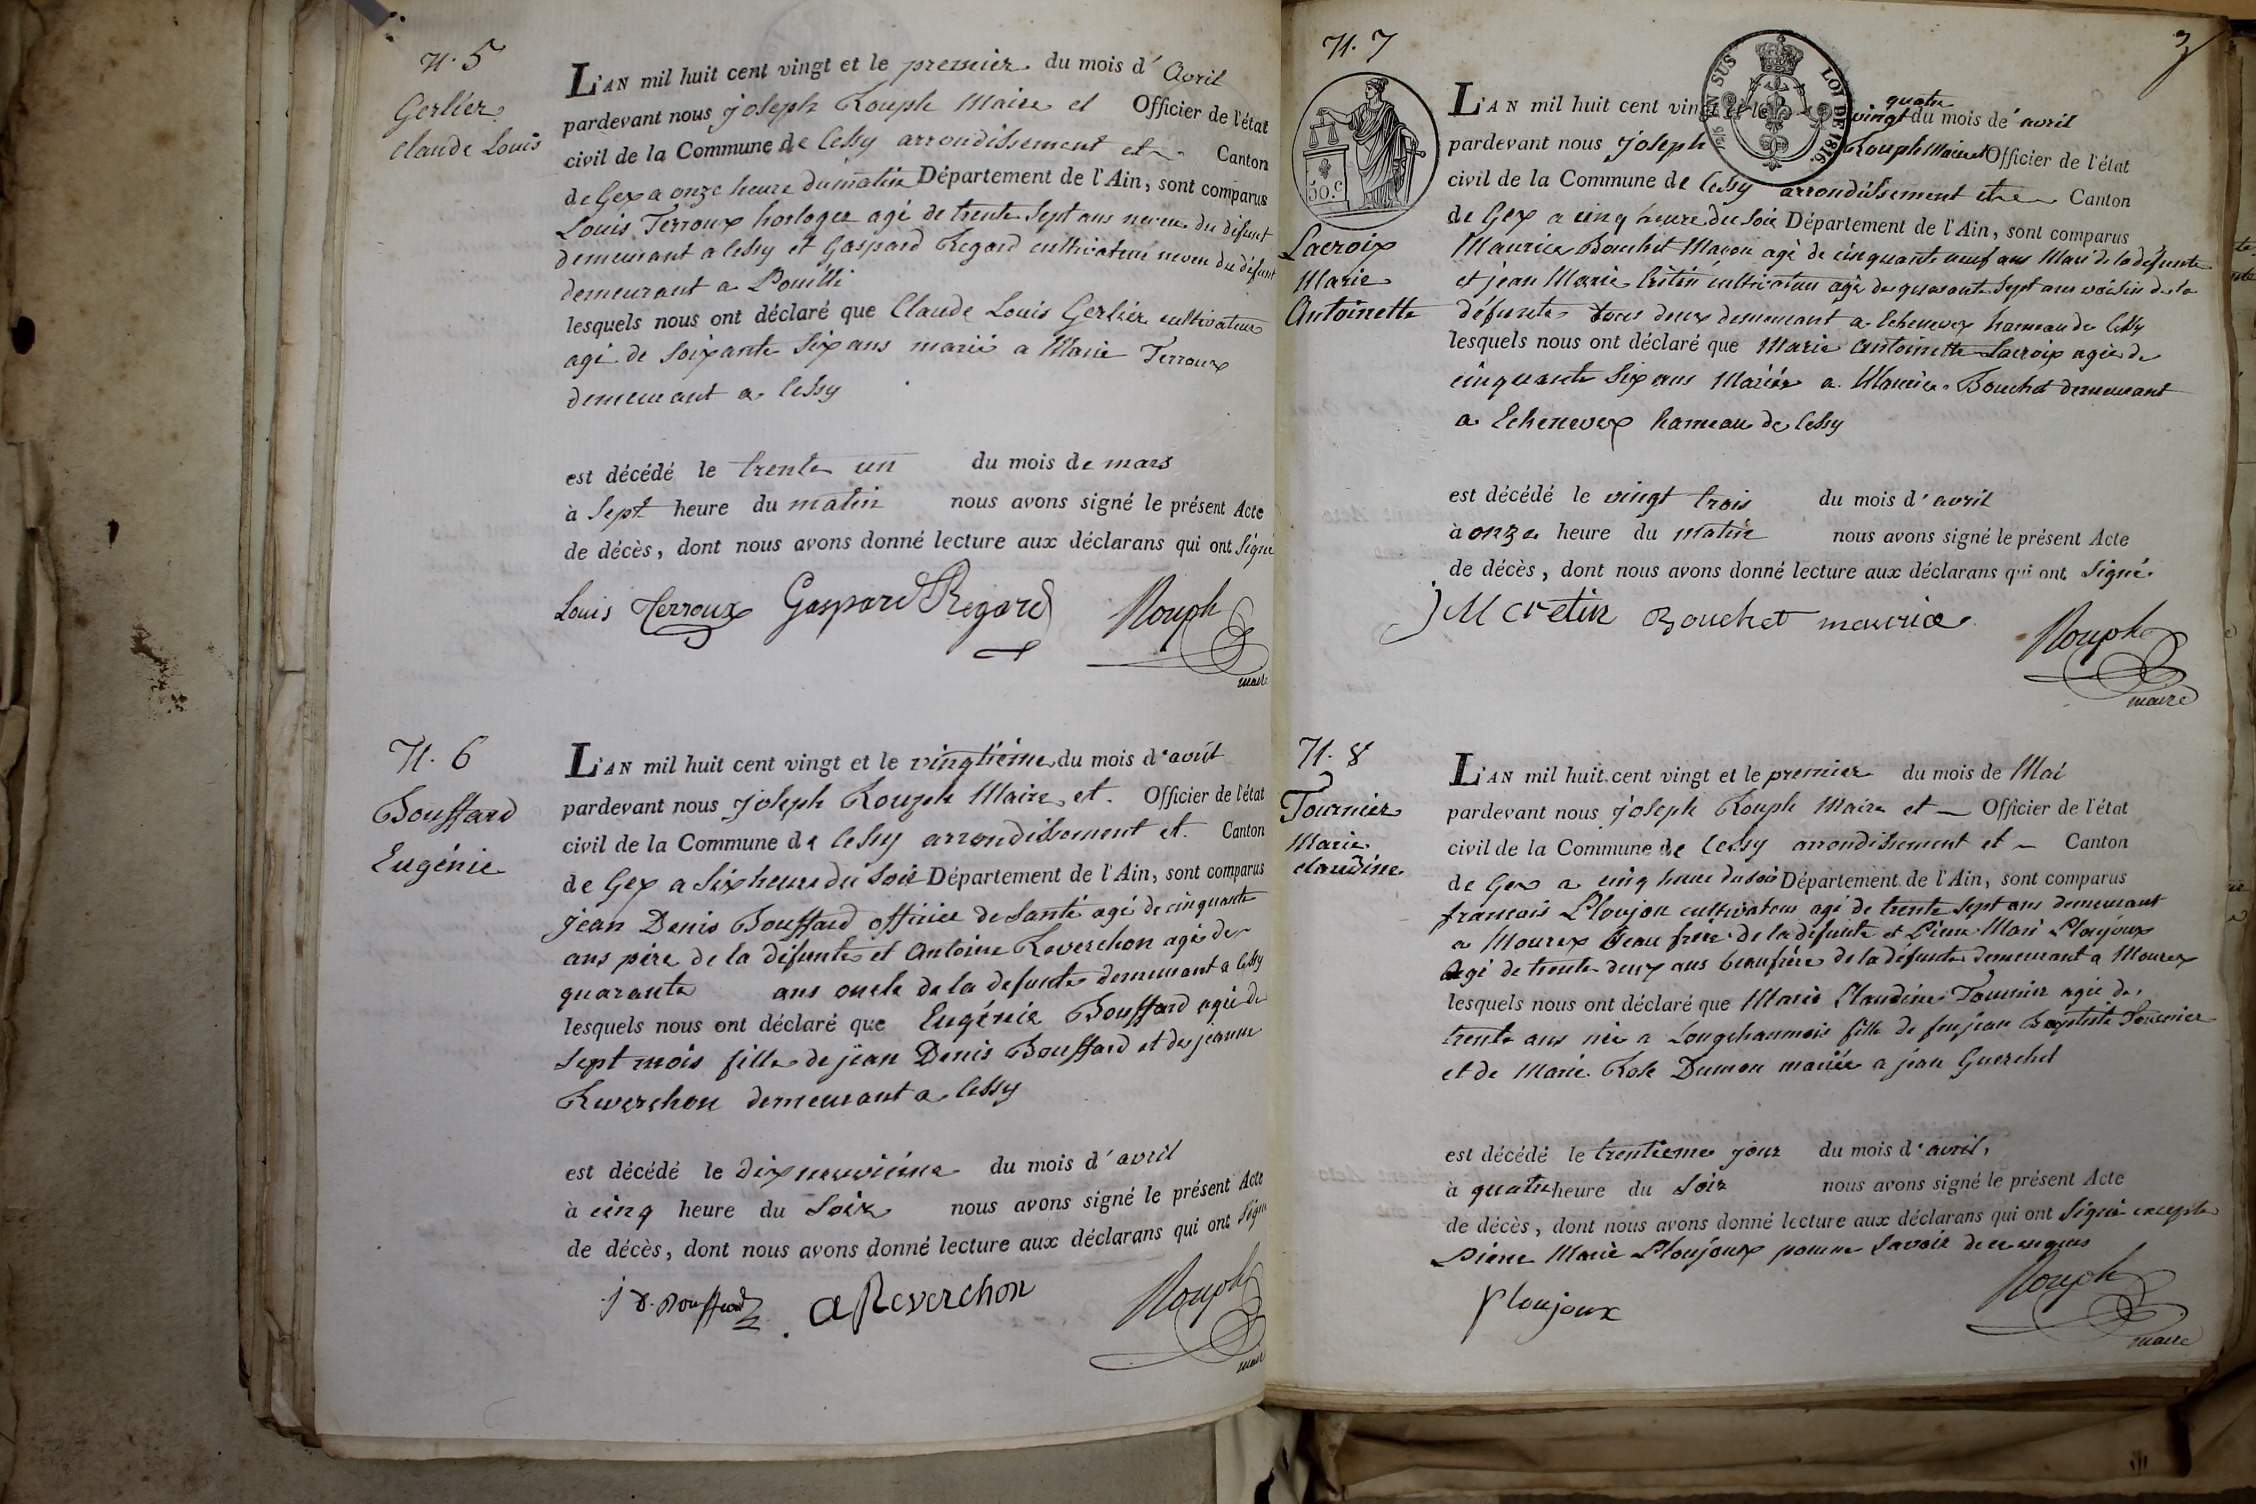 N. 5
Gerlier
Claude Louis
L'AN mil huit cent vingt et le premier du mois d' Avril
pardevant nous joseph Rouph Maire et Officier de l'état
civil de la Commune de Cessy arrondissement et Canton
de Gex a onze heure du matin Département de l'Ain, sont comparus
Louis Terroux horloger agé de trente Sept ans neveu du défunt
demeurant a Cessy et Gaspard Regard cultivateur neveu du défunt
demeurant a Pouilli
lesquels nous ont déclaré que Claude Louis Gerlier cultivateur
agé de Soixante Six ans marié a Marie Terroux
demeurant a Cessy
est décédé le trente un du mois de mars
à Sept heure du matin nous avons signé le présent Acte
de décès, dont nous avons donné lecture aux déclarans qui ont Signé
Louis Terroux Gaspard Regard Rouph
maire
N. 6
Bouffard
Eugénie
L'AN mil huit cent vingt et le vingtième du mois d'avril
pardevant nous joseph Rouph Maire et Officier de l'état
civil de la Commune de Cessy arrondissement et Canton
de Gex a Six heure du Soir Département de l'Ain, sont comparus
jean Denis Bouffard officier de Santé agé de cinquante
ans père de la défunte et Antoine Reverchon agé de
quarante ans oncle de la defunte demeurant a Cessy
lesquels nous ont déclaré que Eugénie Bouffard agée de
Sept mois fille de jean Denis Bouffard et de jeanne
Reverchon demeurant a Cessy
est décédé le dix neuvième du mois d'avril
à cinq heure du Soir nous avons signé le présent Acte
de décès, dont nous avons donné lecture aux déclarans qui ont Signé
j D. Bouffard a Reverchon Rouph
maire
3
N. 7
50.C
TIMBRE EN SUS
LOI DE 1816.
Lacroix
Marie
Antoinette
L'AN mil huit cent vingt et le vingt quatre du mois de avril
pardevant nous joseph Rouph Maire et Officier de l'état
civil de la Commune de Cessy arrondissement et Canton
de Gex a cinq heure du Soir Département de l'Ain, sont comparus
Maurice Bouchet Maçon agé de cinquante neuf ans Mari de la défunte
et jean Marie Crétin cultivateur agé de quarante Sept ans voisin de la
défunte tous deux demeurant a Echenevex hameau de Cessy
lesquels nous ont déclaré que Marie Antoinette Lacroix agée de
cinquante Six ans Mariée a Maurice Bouchet demeurant
a Echenevex hameau de Cessy
est décédé le vingt trois du mois d'avril
à onze heure du matin nous avons signé le présent Acte
de décès, dont nous avons donné lecture aux déclarans qui ont Signé
J M cretin Bouchet maurice Rouph
maire
N. 8
Tournier
Marie
claudine
L'AN mil huit cent vingt et le premier du mois de Mai
pardevant nous joseph Rouph Maire et Officier de l'état
civil de la Commune de Cessy arrondissement et Canton
de Gex a cinq heure du Soir Département de l'Ain, sont comparus
francois Ploujou cultivateur agé de trente Sept ans demeurant
a Mourex Beau frère de la défunte et Pierre Marie Ploujoux
Agé de trente deux ans beaufrère de la défunte demeurant a Mourex
lesquels nous ont déclaré que Marie Claudine Tournier agée de
trente ans née a Longchaumois fille de feu jean Baptiste Tournier
et de Marie Rose Dumon mariée a jean Guerchet
est décédé le trentieme jour du mois d'avril,
à quatre heure du Soir nous avons signé le présent Acte
de décès, dont nous avons donné lecture aux déclarans qui ont Signé excepté
Pierre Marie Ploujoux pour ne Savoir de ce enquis
Ploujoux Rouph
maire